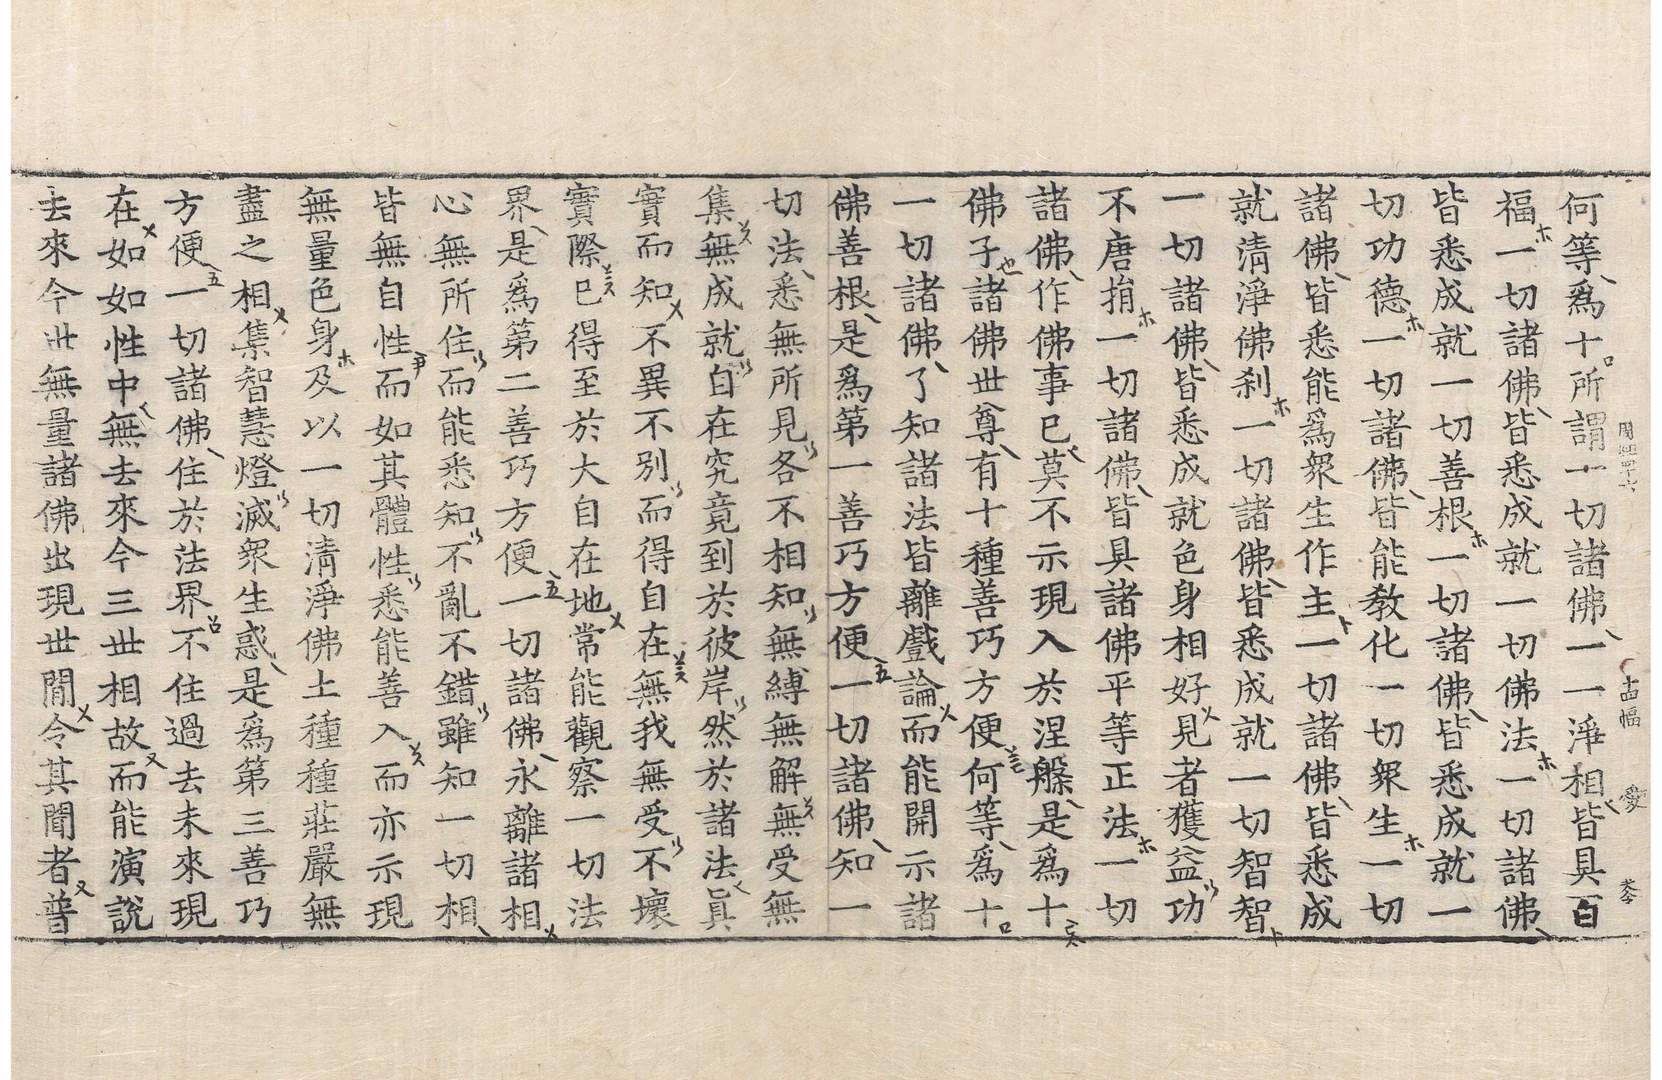 何等爲十所謂一切諸佛一一淨相皆具百
福一切諸佛皆悉成就一切佛法一切諸佛
皆悉成就一切善根一切諸佛皆悉成就一
切功德一切諸佛皆能敎化一切衆生一切
諸佛皆悉能爲衆生作主一切諸佛皆悉成
就清淨佛刹一切諸佛皆悉成就一切智智
一切諸佛皆悉成就色身相好見者獲益功
不唐捐一切諸佛皆具諸佛平等正法一切
諸佛作佛事已莫不示現入於涅槃是爲十
佛子諸佛世尊有十種善巧方便何等爲十
一切諸佛了知諸法皆離戲論而能開示諸
佛善根是爲第一善巧方便一切諸佛知一
切法悉無所見各不相知無縛無解無受無
集無成就自在究竟到於彼岸然於諸法眞
實而知不異不別而得自在無我無受不壞
實際已得至於大自在地常能觀察一切法
界是爲第二善巧方便一切諸佛永離諸相
心無所住而能悉知不亂不錯雖知一切相
皆無自性而如其體性悉能善入而亦示現
無量色身及以一切清淨佛土種種莊嚴無
盡之相集智慧燈滅衆生惑是爲第三善巧
方便一切諸佛住於法界不住過去未來現
在如如性中無去來今三世相故而能演說
去來今世無量諸佛出現世閒令其聞者普